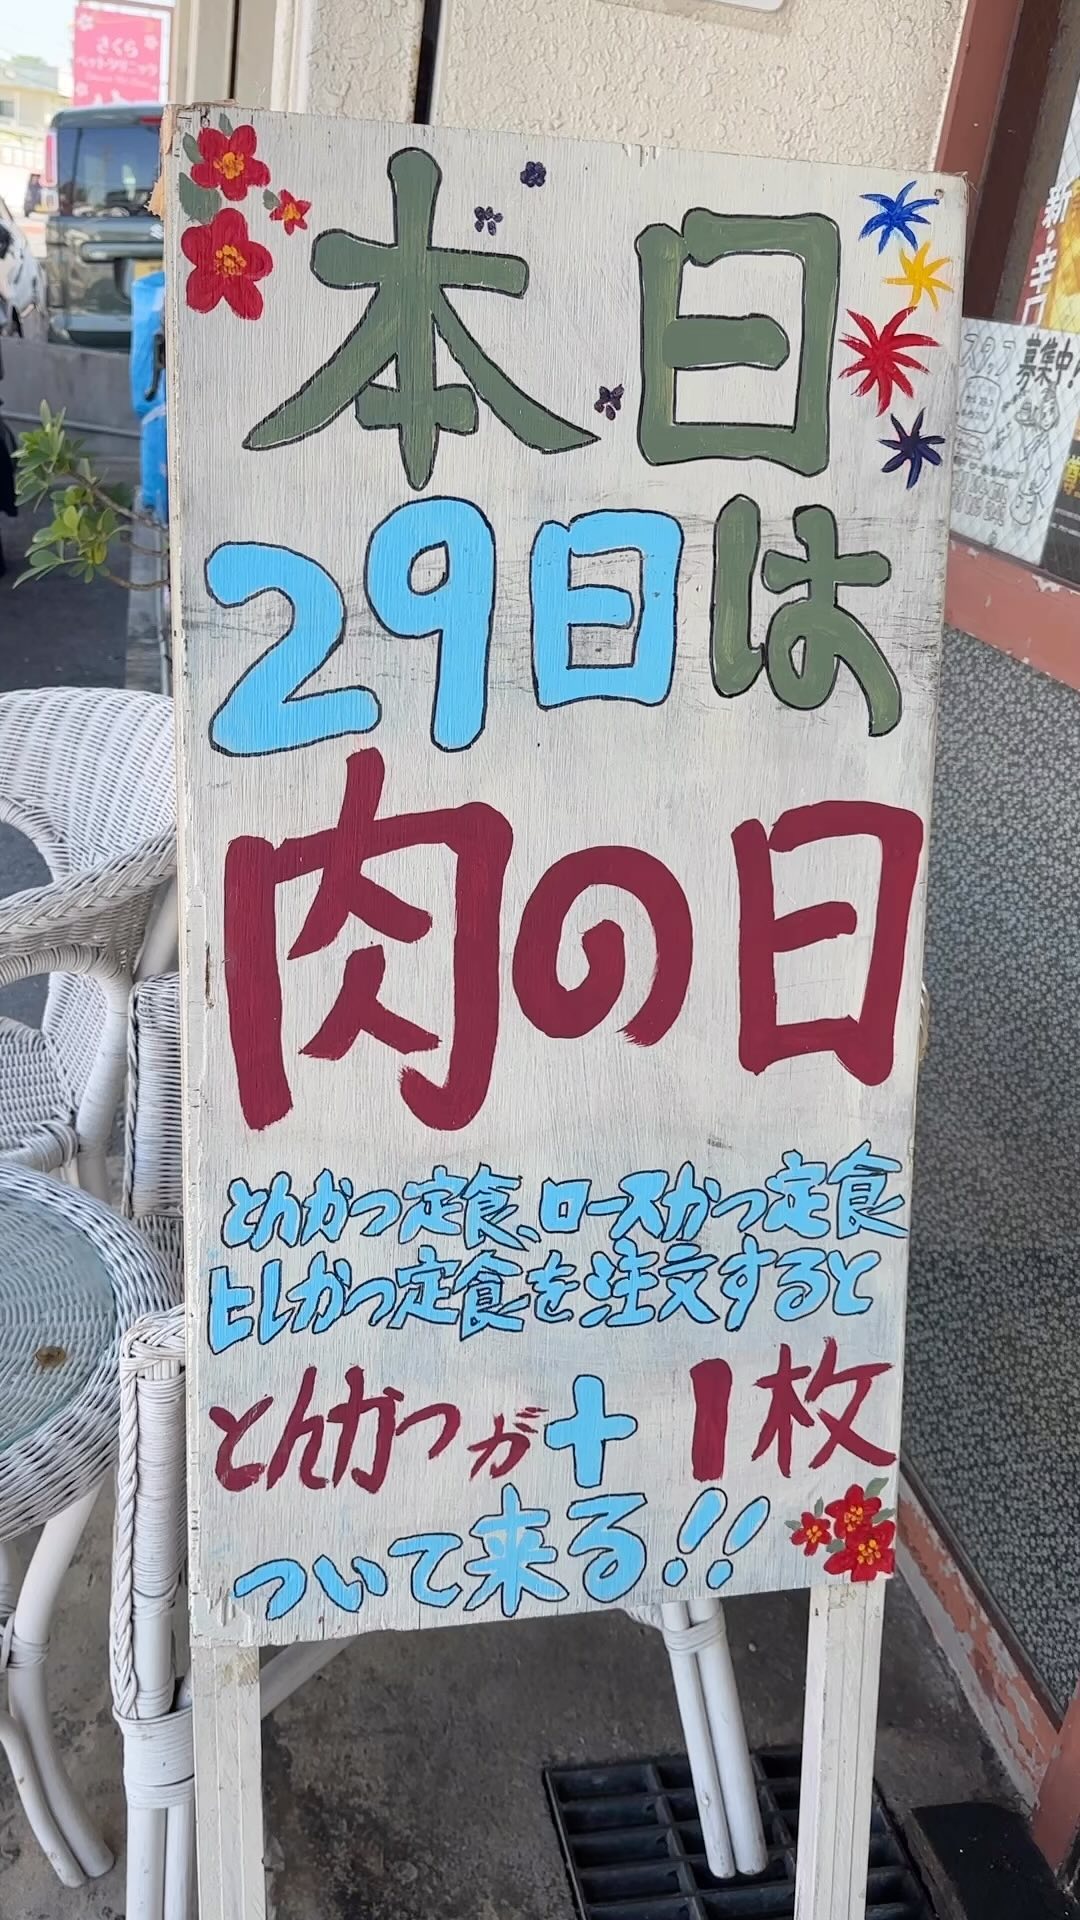 さくら
ペットクリニック
本日
29日は
肉の日
とんかつ定食、ロースかつ定食
ヒレかつ定食を注文すると
とんかつが+1枚
ついて来る!!
新・辛口
スタッフ募集中!